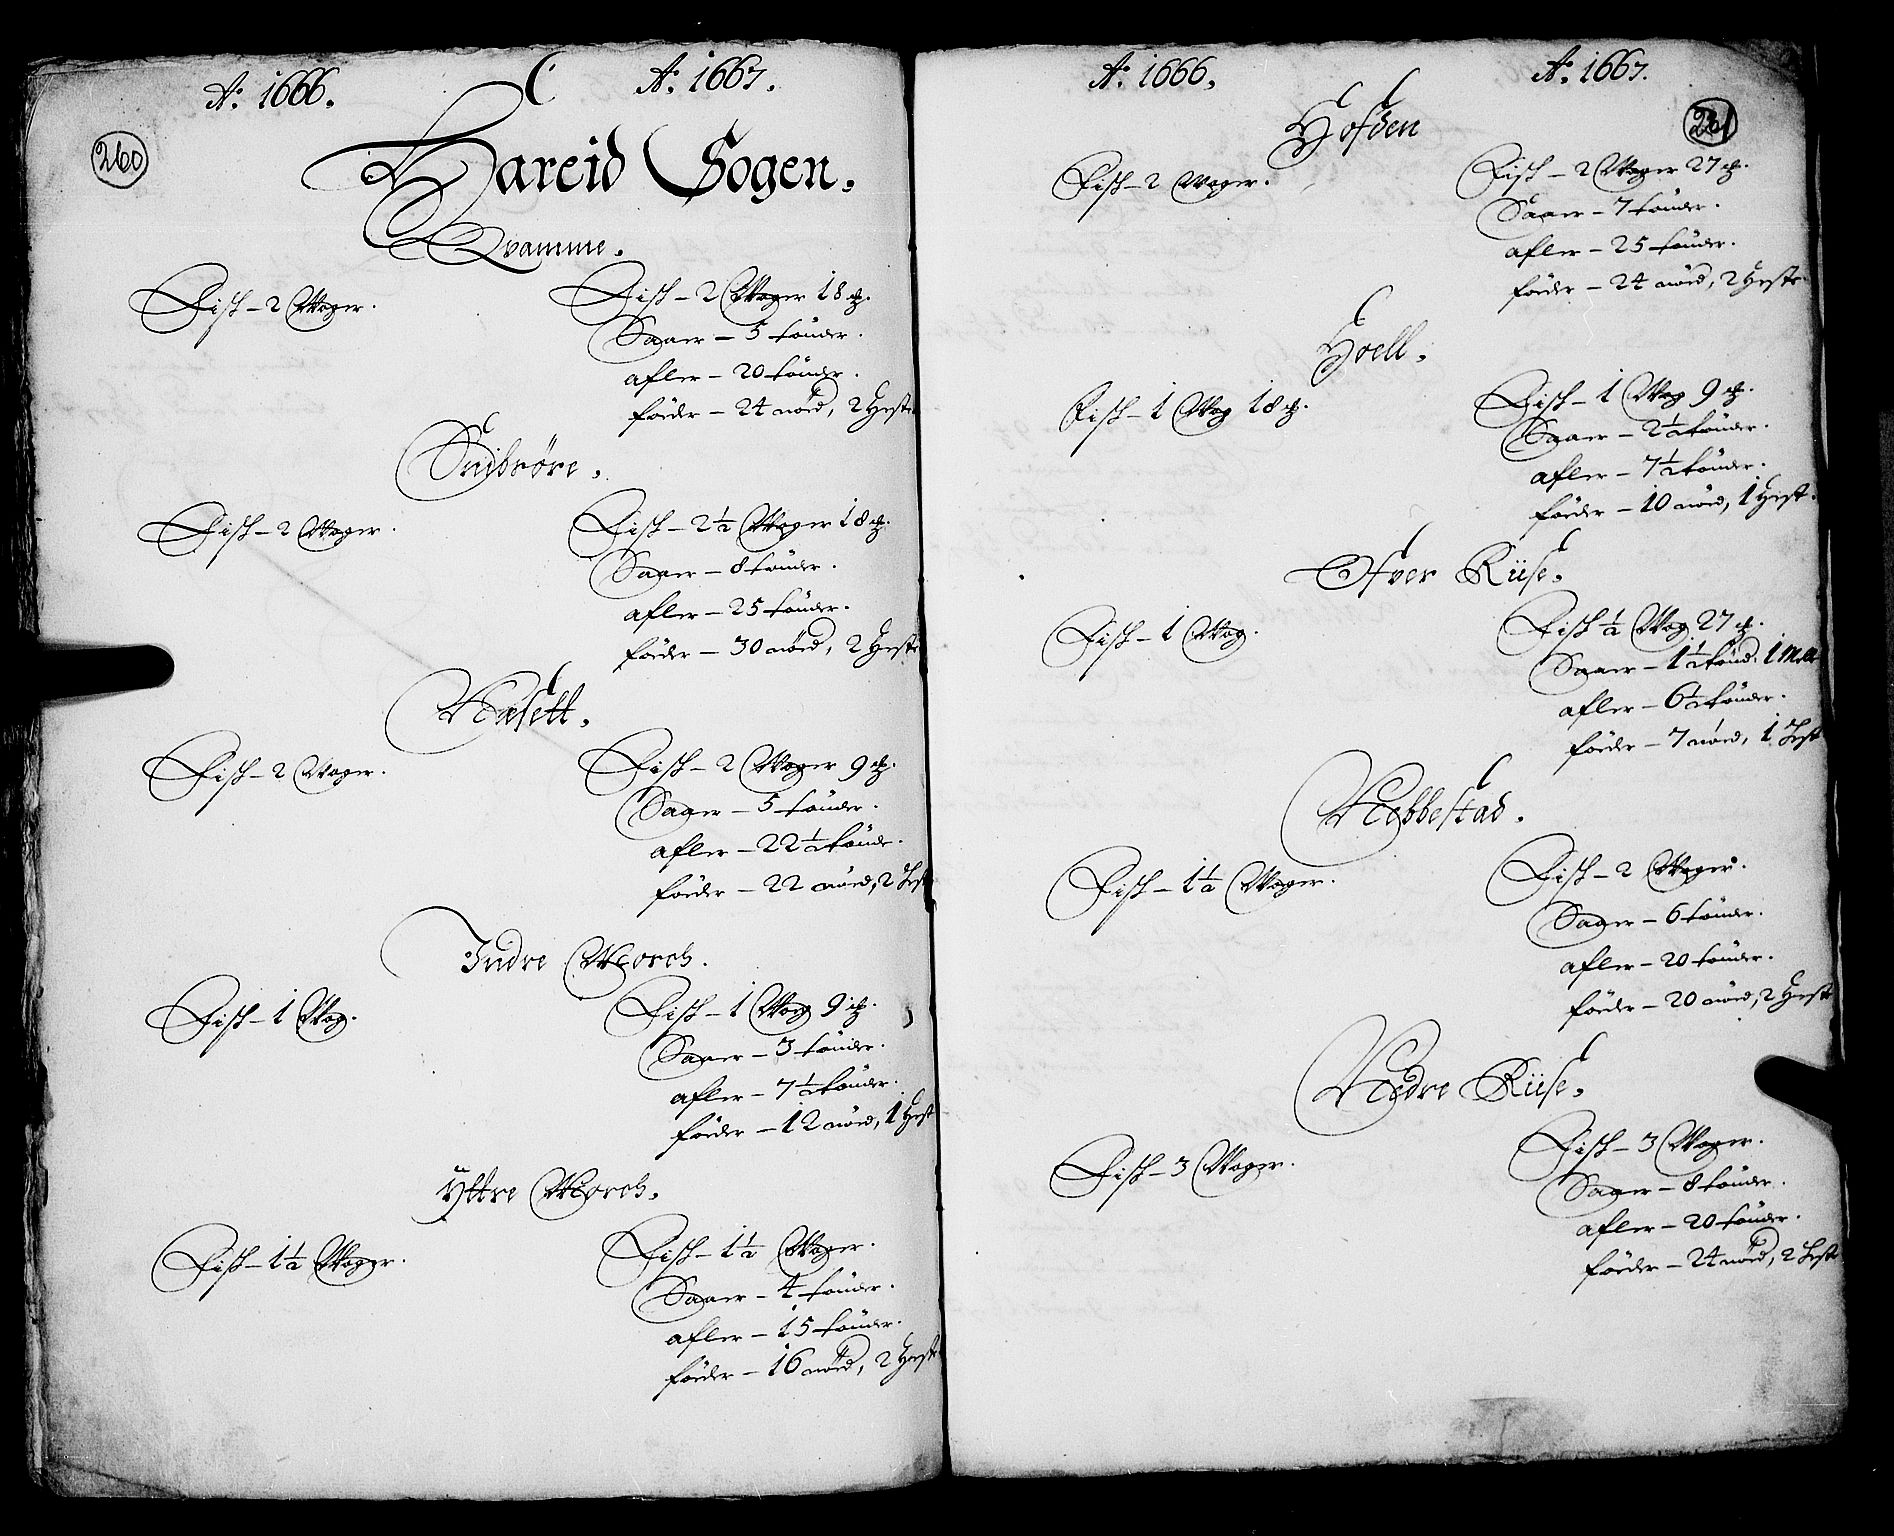 Aº. 1666. Aº. 1667.
260
Hareid Sogen.
Qvamme.
Fisk – 2 Woger. Fisk – 2 Woger 18 ℔.
Saaer – 5 tønder.
afler – 20 tønder.
föeder – 24 nöed, 2 Heste
Snibröre.
Fisk – 2 Woger. Fisk – 2½ Woger 18 ℔.
Saaer – 8 tønder.
afler – 25 tønder.
föeder – 30 nöed, 2 Heste
Næsett.
Fisk – 2 Woger. Fisk – 2 Woger 9 ℔.
Saaer – 5 tønder.
afler – 22½ tønder.
föeder – 22 nöed, 2 Hest
Indre Morch.
Fisk – 1 Wog. Fisk – 1 Wog 9 ℔.
Saaer – 3 tønder.
afler – 7½ tønder.
föeder – 12 nöed, 1 Hest
Yttre Morch.
Fisk – 1½ Woger. Fisk – 1½ Woger.
Saaer – 4 tønder.
afler – 15 tønder.
föeder – 16 nöed, 2 Heste
Aº. 1666. Aº. 1667.
261
Hofden
Fisk – 2 Woger. Fisk – 2 Woger 27 ℔.
Saaer – 7 tønder.
afler – 25 tønder.
föeder – 24 nöed, 2 Heste.
Hoell.
Fisk – 1 Wog 18 ℔. Fisk – 1 Wog 9 ℔.
Saaer – 2½ tønder.
afler – 7½ tønder.
föeder – 10 nöed, 1 Hest.
Ofver Riise.
Fisk – 1 Wog. Fisk ½ Wog 27 ℔.
Saaer – 1½ tönd. 1
afler – 6½ tønder.
föeder – 7 nöed, 1 Hest
Nebbestad.
Fisk – 1½ Woger. Fisk – 2 Woger.
Saaer – 6 tønder.
afler – 20 tønder.
föeder – 20 nöed, 2 Heste
Nedre Riise.
Fisk – 3 Woger. Fisk – 3 Woger.
Saaer – 8 tønder.
afler – 20 tønder.
föeder – 24 nöed, 2 Heste